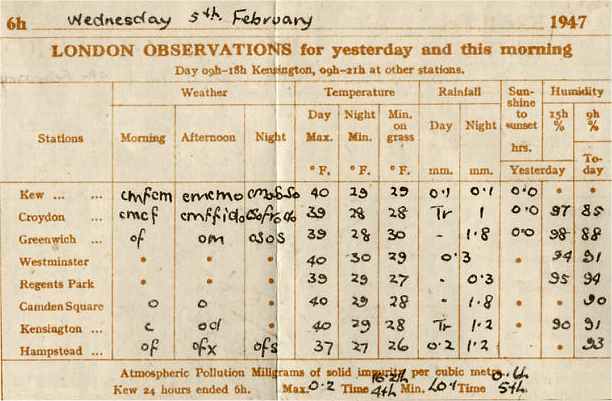 6h Wednesday 5th February 1947
LONDON OBSERVATIONS for yesterday and this morning
Day 09h-18h Kensington, 09h-21h at other stations.
Weather Temperature Rainfall Sun-shine to sunset Humidity
Stations Morning Afternoon Night Day Max. Night Min. Min. on grass Day Night hrs. 15h % 9h %
° F. ° F. ° F. mm. mm. Yesterday To-day
Kew ... ... cmfcm cmcmo 40 29 29 0.1 0.1 0.0 • •
Croydon ... cmcf 39 28 28 Tr 1 0.0 97 85
Greenwich ... of om osos 39 28 30 - 1.8 0.0 98 88
Westminster • • • 40 30 29 0.3 • 94 91
Regents Park • • • 39 29 27 - 0.3 • 95 94
Camden Square o o 40 29 28 - 1.8 • • 90
Kensington ... c od 40 29 28 Tr 1.2 • 90 91
Hampstead ... of ofx ofs 37 27 26 0.2 1.2 • • 93
Atmospheric Pollution Millgrams of solid impurity per cubic metre
Kew 24 hours ended 6h. Max. 0.2 Time 4th Min. Time 5th